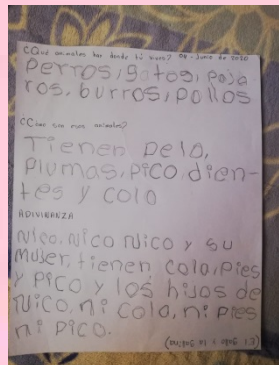 ¿Qué animales hay donde tú vives? 08-Junio de 2020
Perros, gatos, paja
ros, burros, pollos
¿Cómo son esos animales?
Tienen pelo,
plumas, pico, dien-
tes y cola
ADIVINANZA
Nico, Nico Nico y su
mujer, tienen cola, pies
y pico y los hijos de
Nico, ni cola, ni pies
ni pico.
(El gallo y la gallina)